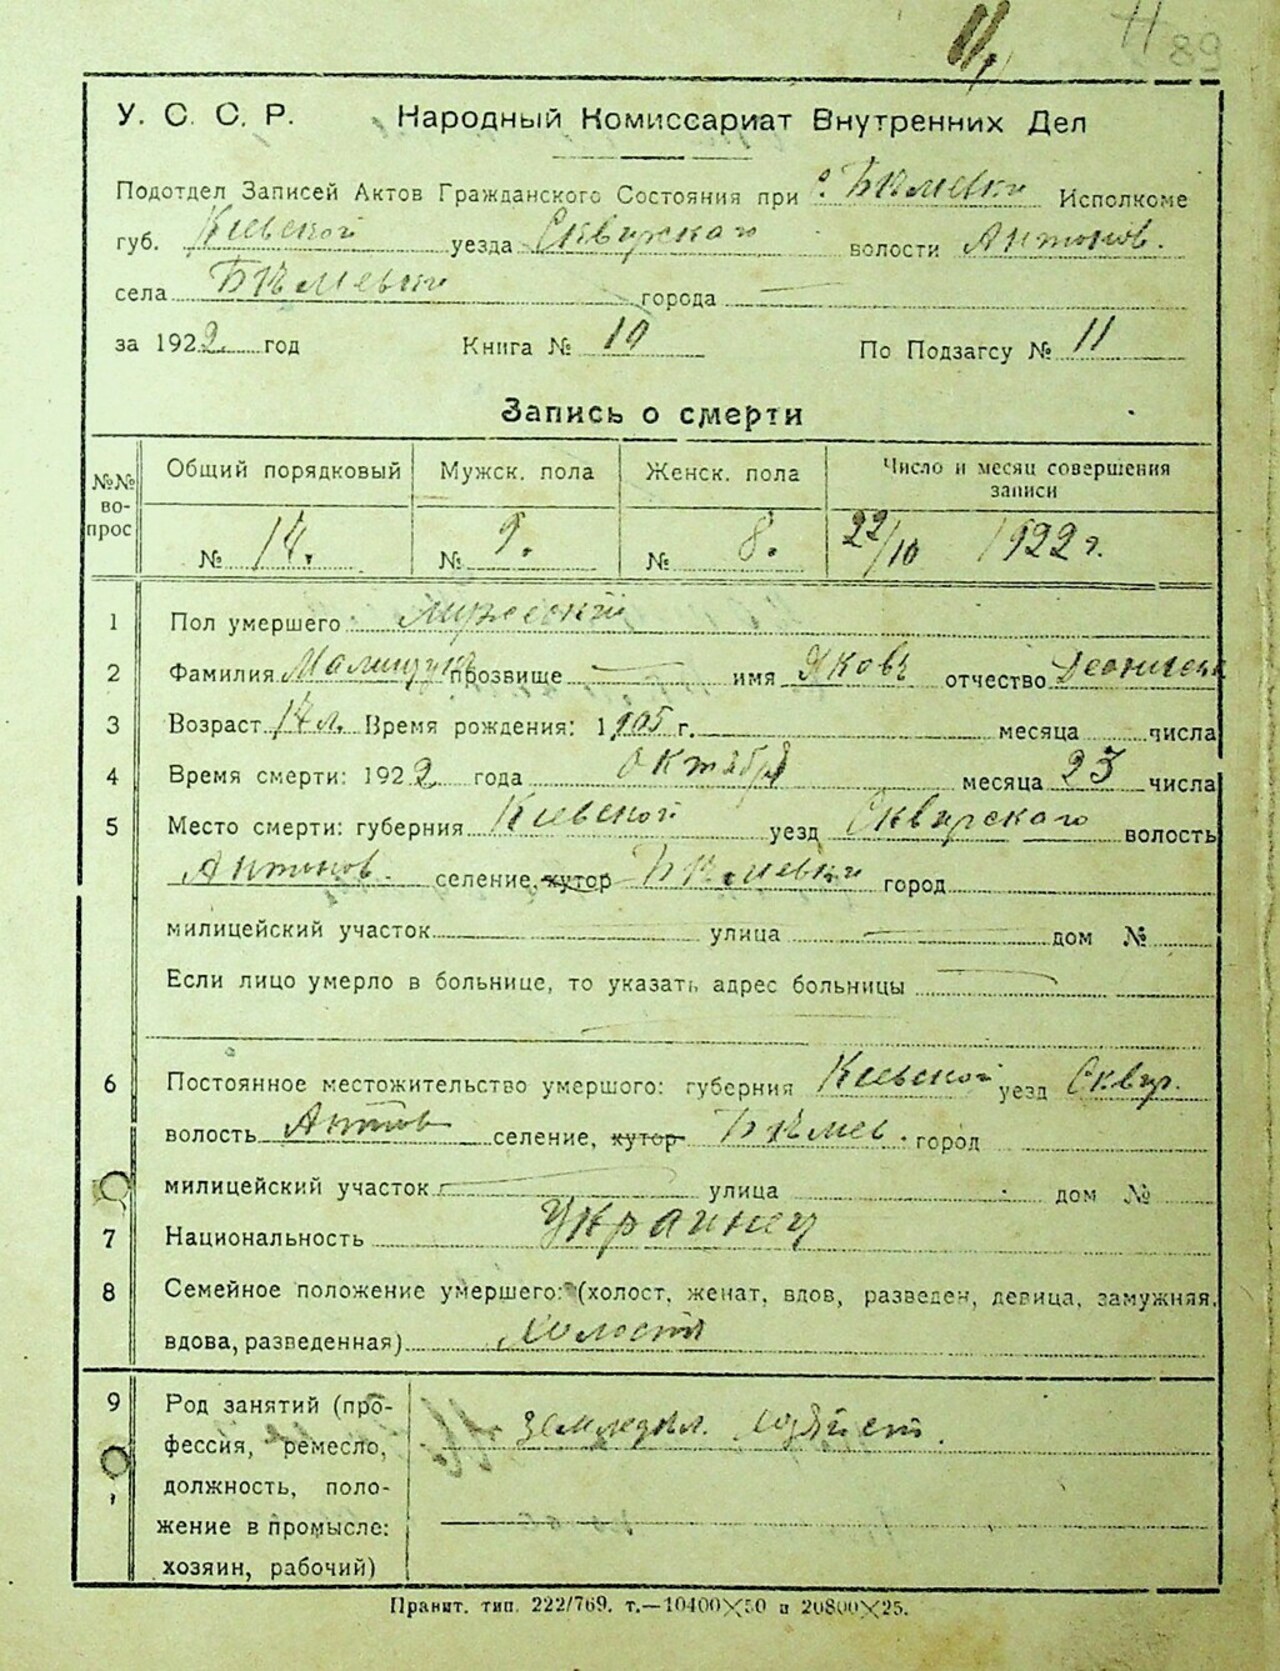 11
У. С. С. Р. Народный Комиссариат Внутренних Дел
Подотдел Записей Актов Гражданского Состояния при с. Бѣлиевки Исполкоме
губ. Киевской уезда Сквирскаго волости Антонов.
села города —
за 1922 год Книга № 10 По Подзагсу № 11
Запись о смерти
№№ во-прос Общий порядковый Мужск. пола Женск. пола Число и месяц совершения записи
№ 17. № 9. № 8. 22/10 1922 г.
1 Пол умершего: мужеский
2 Фамилия прозвище — имя Яковъ отчество
3 Возраст 17 л. Время рождения: 1905 г. месяца числа
4 Время смерти: 1922 года октября месяца 23 числа
5 Место смерти: губерния Киевской уезд Сквирскаго волость
Антонов. селение, хутор город
милицейский участок — улица — дом №
Если лицо умерло в больнице, то указать адрес больницы —
6 Постоянное местожительство умершого: губерния Киевской уезд Сквир.
волость Антонов селение, хутор город
милицейский участок — улица дом №
7 Национальность Украинец
8 Семейное положение умершего: (холост, женат, вдов, разведен, девица, замужняя,
вдова, разведенная) Холостъ
9 Род занятий (про- земледѣл. хозяйст.
фессия, ремесло,
должность, поло-
жение в промысле:
хозяин, рабочий)
Правит. тип. 222/769. т.—10400×50 и 20800×25.